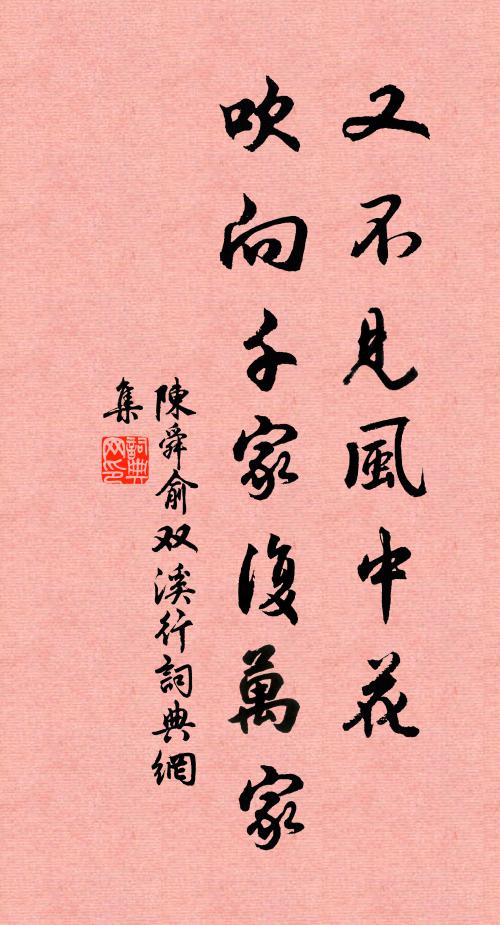 又不見風中花
吹向千家復萬家
陳舜俞双溪行詞典網
集
詞典
网印